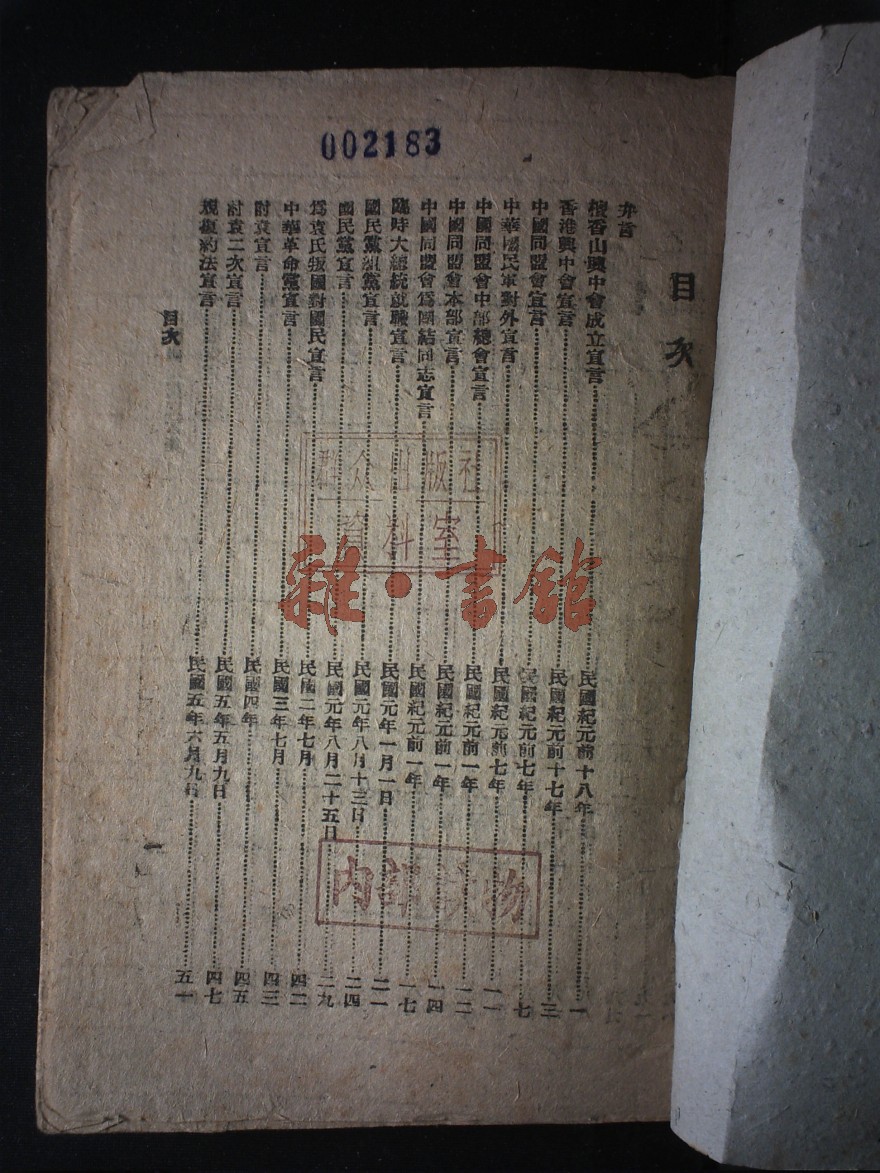 002183
目次
弁言
檀香山興中會成立宣言 民國紀元前十八年 一
香港興中會宣言 民國紀元前十七年 三
中國同盟會宣言 民國紀元前七年 七
中華國民軍對外宣言 民國紀元前七年 一一
中國同盟會中部總會宣言 民國紀元前一年 一二
中國同盟會本部宣言 民國紀元前一年 一四
中國同盟會爲團結同志宣言 民國紀元前一年 一七
臨時大總統就職宣言 民國元年一月一日 二一
國民黨組黨宣言 民國元年八月十三日 二四
國民黨宣言 民國元年八月二十五日 二九
爲袁氏叛國對國民宣言 民國二年七月 四二
中華革命黨宣言 民國三年七月 四三
討袁宣言 民國四年 四五
討袁二次宣言 民國五年五月九日 四七
規復約法宣言 民國五年六月九日 五一
目次
一
群众出版社
資料室
雜·書館
内 物